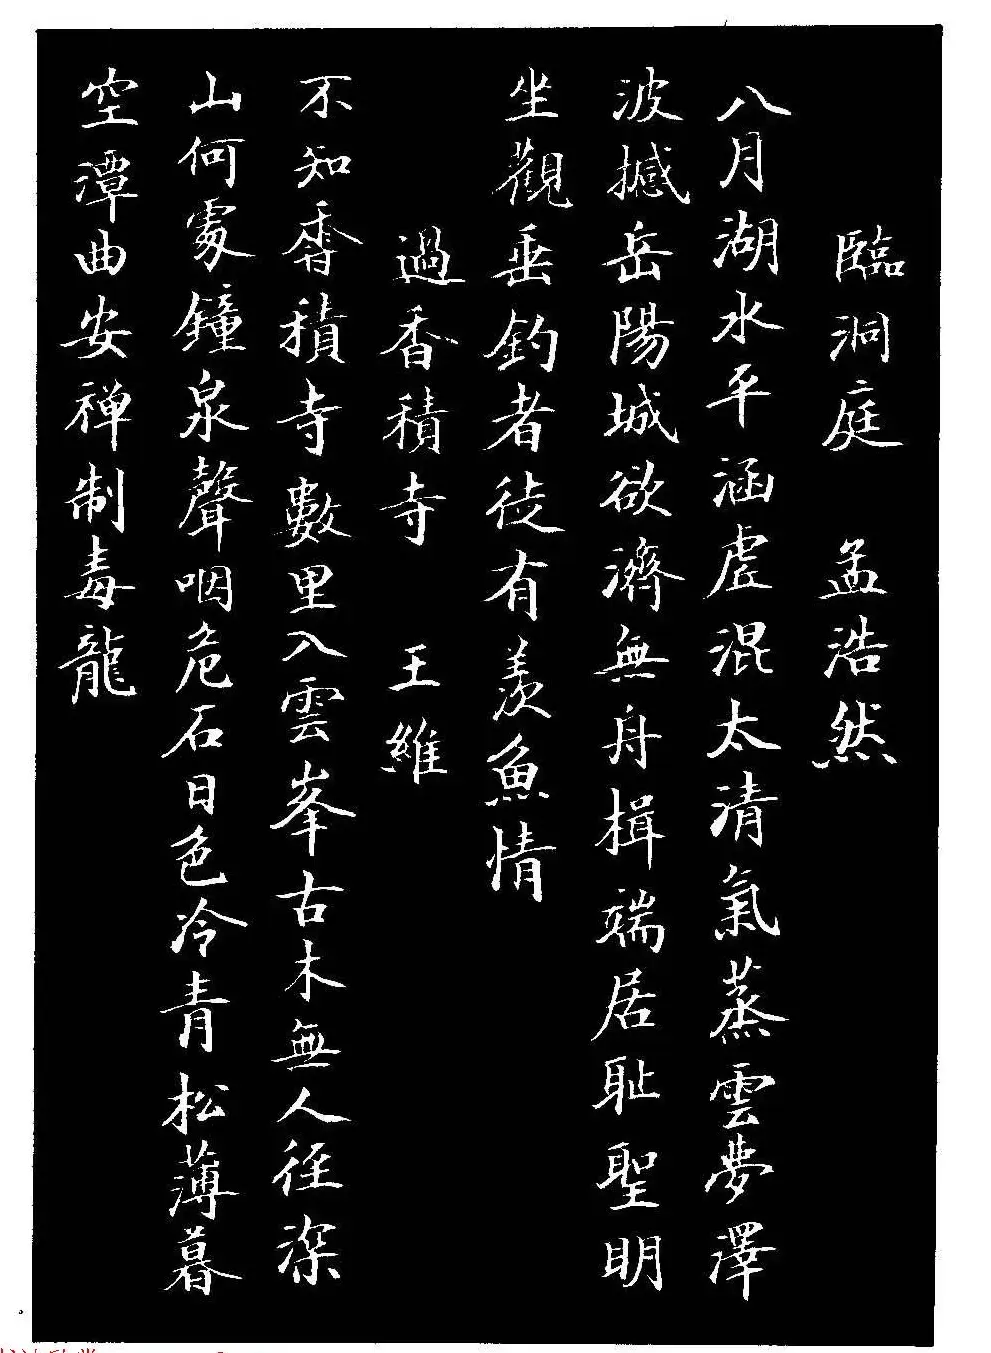 臨洞庭 孟浩然
八月湖水平涵虛混太清氣蒸雲夢澤
波撼岳陽城欲濟無舟楫端居耻聖明
坐觀垂釣者徒有羨魚情
過香積寺 王維
不知香積寺數里入雲峯古木無人徑深
山何處鐘泉聲咽危石日色冷青松薄暮
空潭曲安禅制毒龍